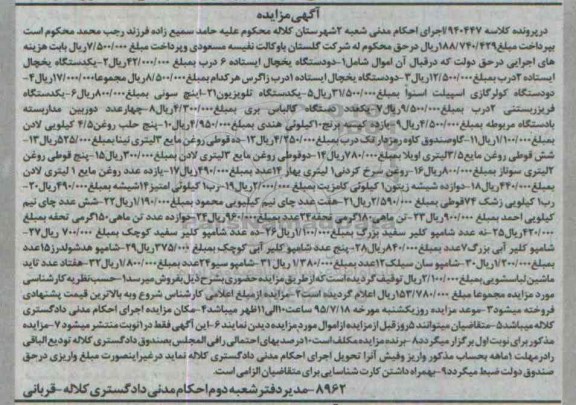 آگهی مزایده
در پرونده کلاسه ۹۴۰۴۴۷/اجرای احکام مدنی شعبه ۲ شهرستان کلاله محکوم علیه حامد سمیع زاده فرزند رجب محمد محکوم است
بپرداخت مبلغ ۱۸۸/۷۴۰/۴۲۹ ریال در حق محکوم له شرکت گلستان باوکالت نفیسه مسعودی وپرداخت مبلغ ۷/۵۰۰/۰۰۰ ریال بابت هزینه
های اجرایی در حق دولت که در قبال آن اموال شامل ۱-دودستگاه یخچال ایستاده ۶ درب بمبلغ ۴۲/۰۰۰/۰۰۰ ریال ۲-یکدستگاه یخچال
ایستاده ۲درب بمبلغ ۱۲/۵۰۰/۰۰۰ ریال ۳-دودستگاه یخچال ایستاده ۱درب زاگرس هر کدام بمبلغ ۸/۵۰۰/۰۰۰ ریال مجموعا ۱۷/۰۰۰/۰۰۰ ریال ۴-
دودستگاه کولرگازی اسپیلت اسنوا بمبلغ ۳۱/۵۰۰/۰۰۰ ریال ۵-یکدستگاه تلویزیون ۲۱ اینچ سونی بمبلغ ۸۰۰/۰۰۰ ریال ۶-یکدستگاه
فریزر بستنی ۲درب بمبلغ ۹/۵۰۰/۰۰۰ ریال ۷-یکعدد دستگاه کالباس بری بمبلغ ۴/۳۰۰/۰۰۰ ریال ۸-چهارعدد دوربین مداربسته
بادستگاه مربوطه بمبلغ ۴/۵۰۰/۰۰۰ ریال ۹-یازده کیسه برنج ۱۰ کیلوئی هندی بمبلغ ۴/۹۵۰/۰۰۰ ریال ۱۰-پنج حلب روغن ۴/۵ کیلویی لادن
بمبلغ ۱/۱۰۰/۰۰۰ ریال ۱۱-گاوصندوق کاوه رمزدار تک درب بمبلغ ۴/۲۵۰/۰۰۰ ریال ۱۲-ده قوطی روغن مایع ۲لیتری نینا بمبلغ ۵۲۵/۰۰۰ ریال ۱۳-
شش قوطی روغن مایع ۳/۵لیتری اویلا بمبلغ ۷۸۰/۰۰۰ ریال ۱۴-دوقوطی روغن مایع ۳لیتری لادن بمبلغ ۳۰۰/۰۰۰ ریال ۱۵-پنج قوطی روغن
۲لیتری سولاز بمبلغ ۸۰۰/۰۰۰ ریال ۱۶-روغن سرخ کردنی ۱ لیتری بهار ۱۴عدد بمبلغ ۴۹۰/۰۰۰ ریال ۱۷-یازده عدد روغن مایع ۱ لیتری لادن
بمبلغ ۴۴۰/۰۰۰ ریال ۱۸-دوازده شیشه زیتون ۱ کیلوئی کامزیت بمبلغ ۲/۰۰۰/۰۰۰ ریال ۱۹-رب ۱ کیلوئی امتیز ۱۴ شیشه بمبلغ ۴۹۰/۰۰۰ ریال ۲۰-
رب ۱ کیلویی زشک ۷۴ قوطی بمبلغ ۲/۵۹۰/۰۰۰ ریال ۲۱-هفت عدد چای نیم کیلیویی محمود بمبلغ ۱/۱۹۰/۰۰۰ ریال ۲۲-شش عدد چای نیم
کیلویی احمد بمبلغ ۹۰۰/۰۰۰ ریال ۲۳-تن ماهی ۱۸۰ گرمی تحفه ۲۴عدد بمبلغ ۹۶۰/۰۰۰ ریال ۲۴-دوازده عدد تن ماهی ۱۵۰ گرمی تحفه بمبلغ
۴۲۰/۰۰۰ ریال ۲۵-نه عدد شامپو کلیر سفید بزرگ بمبلغ ۱/۱۰۰/۰۰۰ ریال ۲۶-ده عدد شامپو کلیر سفید کوچک بمبلغ ۷۰۰/۰۰۰ ریال ۲۷-
شامپو کلیر آبی بزرگ ۷عدد بمبلغ ۸۴۰/۰۰۰ ریال ۲۸-پنج عدد شامپو کلیر آبی کوچک بمبلغ ۳۷۵/۰۰۰ ریال ۲۹-شامپو هدشولدرز ۱۵عدد
بمبلغ ۱/۲۰۰/۰۰۰ ریال ۳۰-شامپو سان سیلک ۱۲عدد بمبلغ ۱/۳۸۰/۰۰۰ ریال ۳۱-شامپو سیو ۲۴عدد بمبلغ ۱/۸۰۰/۰۰۰ ریال ۳۲-هفتاد عدد تاید
ماشین لباسشویی بمبلغ ۲/۱۰۰/۰۰۰ ریال توقیف گردیده است که از طریق مزایده حضوری بشرح ذیل بفروش میرسد ۱-حسب نظریه کارشناسی
مورد مزایده مجموعا مبلغ ۱۵۳/۷۸۰/۰۰۰ ریال اعلام گردیده است ۲-مزایده از مبلغ اعلامی کارشناس شروع وبه بالاترین قیمت پیشنهادی
فروخته میشود ۳-موعد مزایده روز یکشنبه مورخه ۹۵/۷/۱۸ ساعت ۱۰ الی ۱۱ ظهر میباشد ۴-مکان مزایده اجرای احکام مدنی دادگستری
کلاله میباشد ۵-متقاضیان میتوانند ۵ روز قبل از مزایده از اموال مورد مزایده دیدن نمایند ۶-این آگهی فقط در ۱ نوبت منتشر میشود ۷-مزایده
مذکور برای نوبت اول برگزار میگردد ۸-برنده مزایده مکلف است ۱۰ درصد بهای احتمالی رافی المجلس بصندوق دادگستری کلاله تودیع الباقی
را در مهلت ۱ ماهه بحساب مذکور واریز وفیش آنرا تحویل اجرای احکام مدنی دادگستری کلاله نماید در غیر اینصورت مبلغ واریزی در حق
صندوق دولت ضبط میگردد ۹-بهمراه داشتن کارت شناسایی برای متقاضیان الزامی است.
۸۹۶۲-مدیر دفتر شعبه دوم احکام مدنی دادگستری کلاله - قربانی